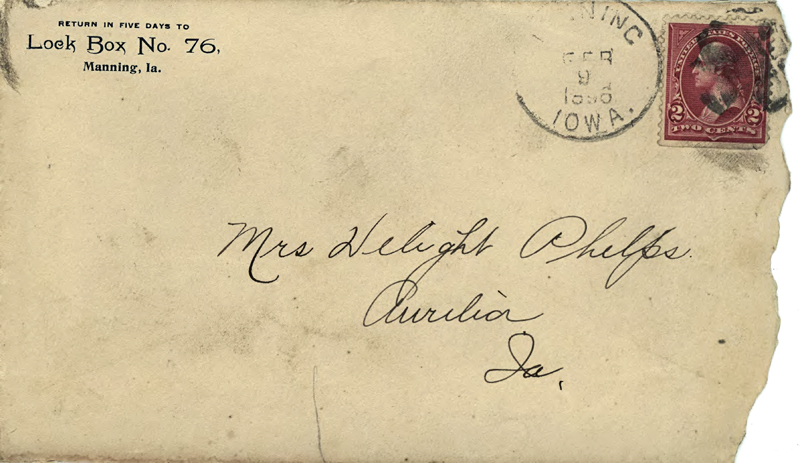 RETURN IN FIVE DAYS TO
Lock Box No. 76,
Manning, Ia.
FEB
9
1896
IOWA.
UNITED STATES POSTAGE
2 2
TWO CENTS
Mrs Delight Phelps.
Aurelia
Ia.